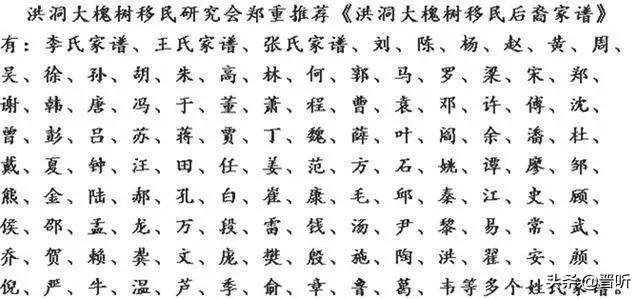 洪洞大槐树移民研究会郑重推荐《洪洞大槐树移民后裔家谱》
有：李氏家谱、王氏家谱、张氏家谱、刘、陈、杨、赵、黄、周、
吴、徐、孙、胡、朱、高、林、何、郭、马、罗、梁、宋、郑、
谢、韩、唐、冯、于、董、萧、程、曹、袁、邓、许、傅、沈、
曾、彭、吕、苏、蒋、贾、丁、魏、薛、叶、阎、余、潘、杜、
戴、夏、钟、汪、田、任、姜、范、方、石、姚、谭、廖、邹、
熊、金、陆、郝、孔、白、崔、康、毛、邱、秦、江、史、顾、
侯、邵、孟、龙、万、段、雷、钱、汤、尹、黎、易、常、武、
乔、贺、赖、龚、文、庞、樊、殷、施、陶、洪、翟、安、颜、
倪、严、牛、温、芦、季、俞、章、鲁、葛、韦等多个姓氏家谱。
头条@晋听